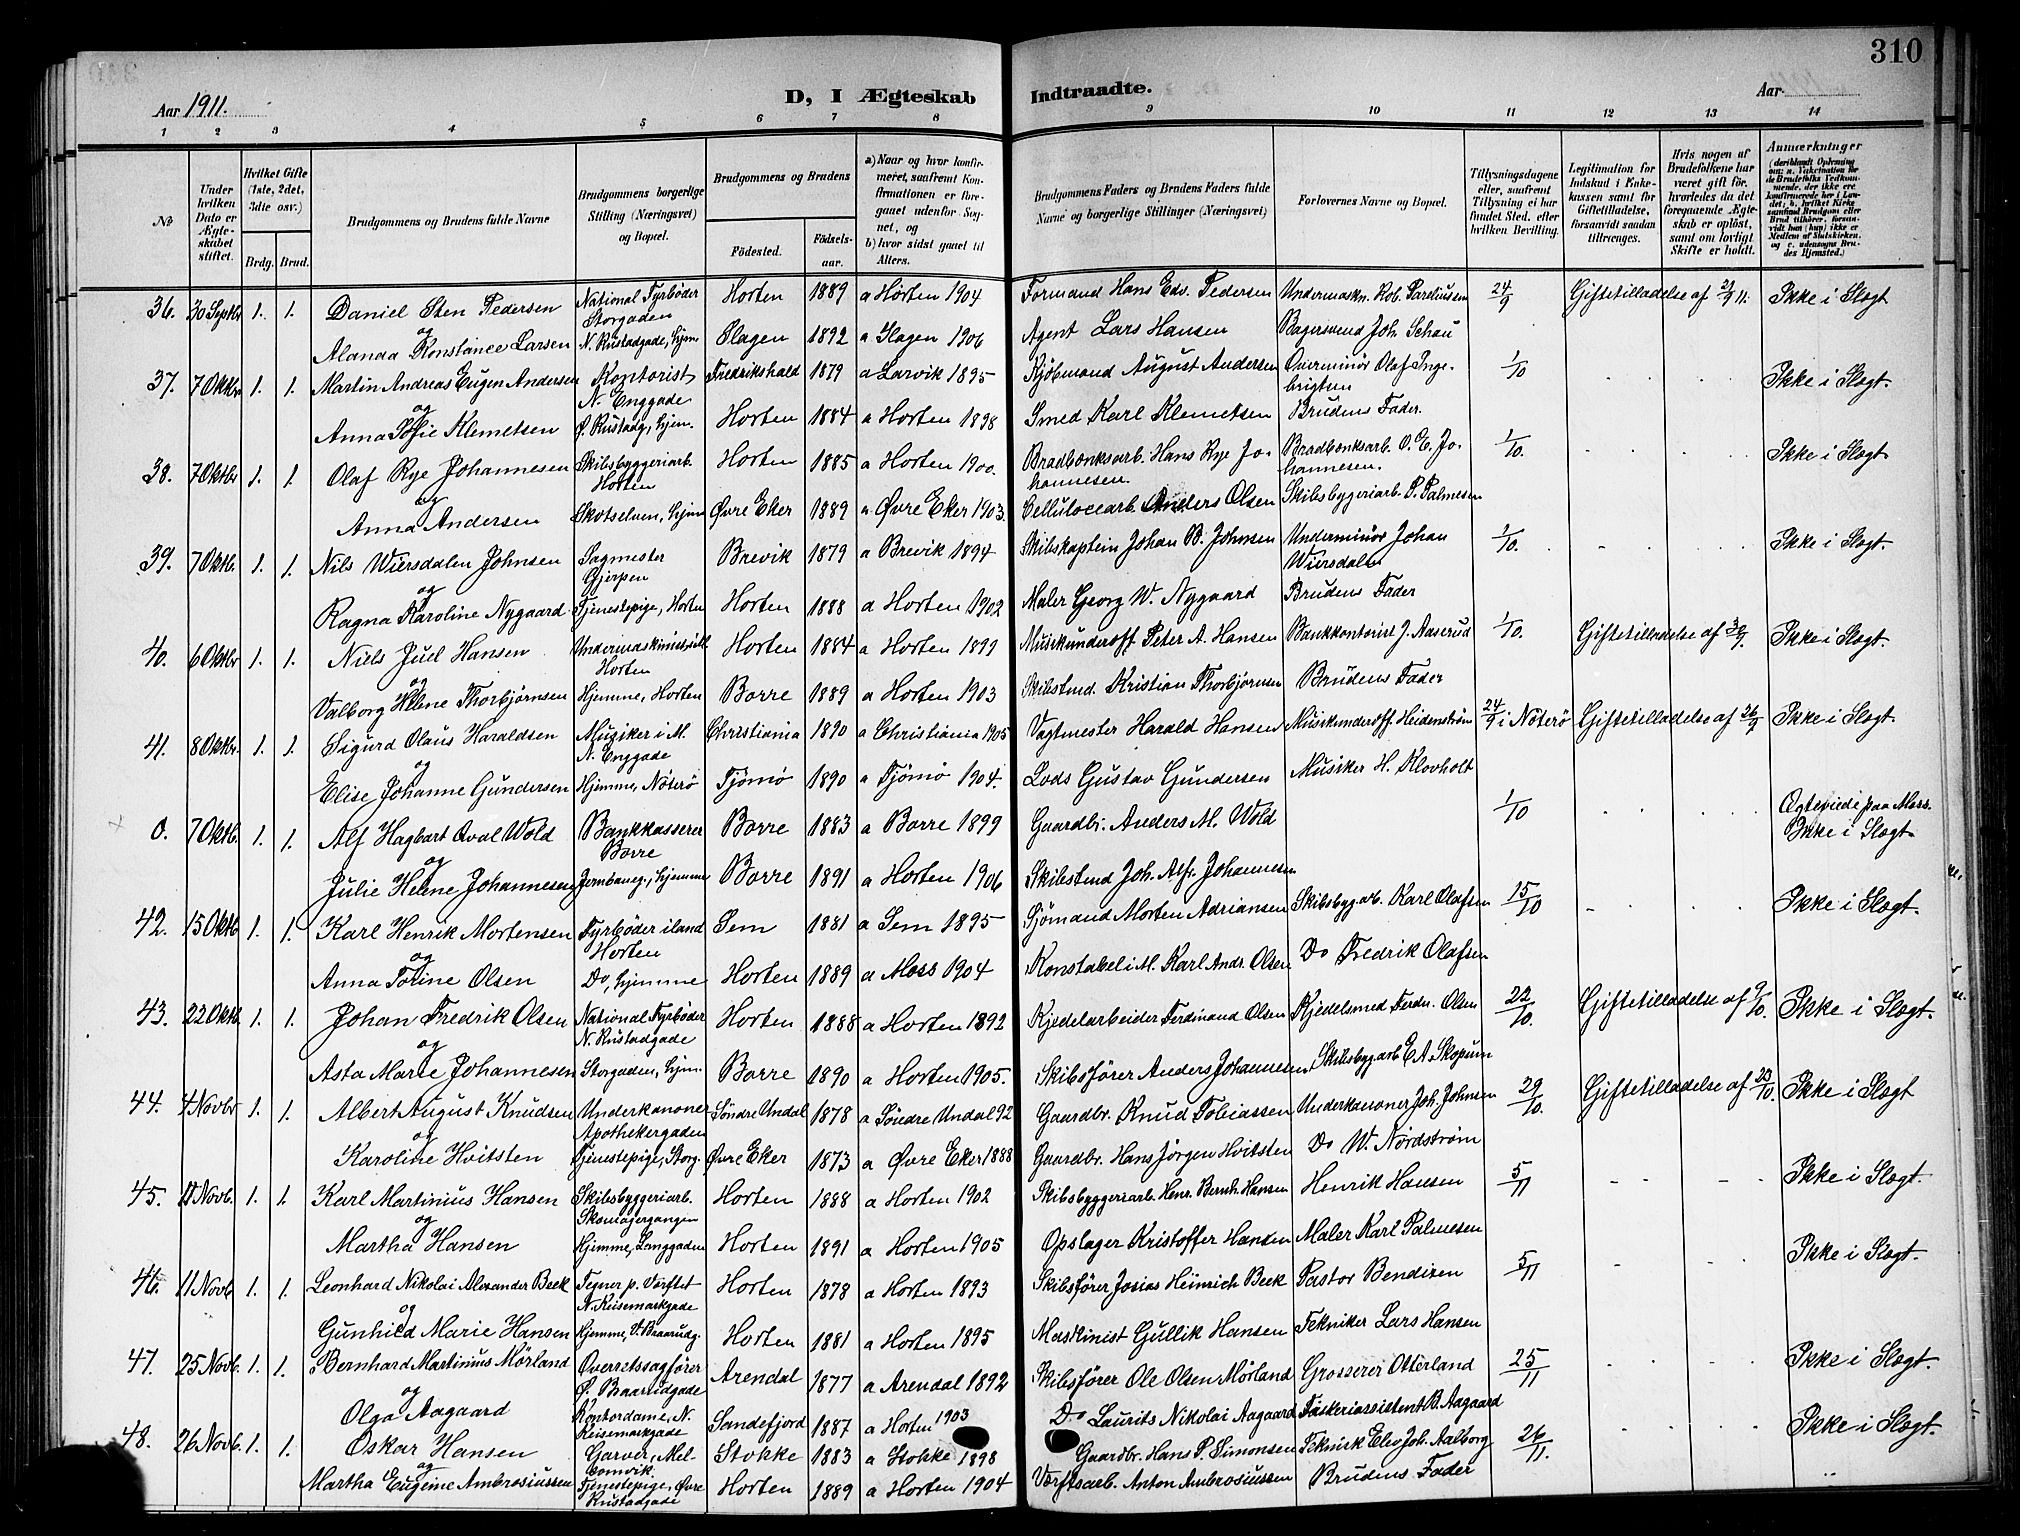 310
Aar 1911.
D, I Ægteskab Indtraadte.
Aar
1 2 3 4 5 6 7 8 9 10 11 12 13 14
No
Under hvilken Dato er Ægteskabet stiftet.
Hvilket Gifte (1ste, 2det, 3dte osv.)
Brdg. Brud.
Brudgommens og Brudens fulde Navne
Brudgommens borgerlige Stilling (Næringsvei) og Bopæl.
Brudgommens og Brudens
Fødested. Fødselsaar.
a) Naar og hvor konfirmeret, saafremt Konfirmationen er foregaaet udenfor Sognet, og b) hvor sidst gaaet til Alters.
Brudgommens Faders og Brudens Faders fulde Navne og borgerlige Stillinger (Næringsvei)
Forlovernes Navne og Bopæl.
Tillysningsdagene eller, saafremt Tillysning ei har fundet Sted, efter hvilken Bevilling.
Legitimation for Indskud i Enkekassen samt for Giftetilladelse, forsaavidt saadan tiltrænges.
Hvis nogen af Brudefolkene har været gift før, hvorledes da det foregaaende Ægteskab er opløst, samt om lovligt Skifte er holdt.
Anmerkninger
36. 30 Septbr 1. 1. Daniel Sten Pedersen National Fyrbøder Storgaden Horten 1889 a Horten 1904 Formand Hans Edv. Pedersen Undermaskn. Rob. Pareliussen 24/9 Giftetilladelse af 21/9 11. Ikke i Slægt
og
Alanda Konstance Larsen N. Rustadgade, hjem Slagen 1892 a Slagen 1906 Agent Lars Hansen Bagersvend Joh. Schau
37. 7 Oktbr 1. 1. Martin Andreas Eugen Andersen Kontorist N. Enggade Fredrikshald 1879 a Larvik 1895 Kjøbmand August Andersen Overminör Olaf Ingebrigtsen 1/10 Ikke i Slægt.
og
Anna Sofie Klemetsen Ø. Rustadg, hjem. Horten 1884 a Horten 1898 Smed Karl Klemetsen Brudens Fader.
38. 7 Oktbr 1. 1. Olaf Rye Johannesen Skibsbyggeriarb. Horten Horten 1885 a Horten 1900. Bradbænksarb. Hans Rye Johannesen. Bradbænksarb. O. E. Johannesen. 1/10. Ikke i Slægt
og
Anna Andersen Skotselven, hjem Øvre Eker 1889 a Øvre Eker 1903. Cellulocearb. Anders Olsen Skibsbygeriarb. P. Palmesen
39. 7 Oktb. 1. 1. Nils Wiersdalen Johnsen Sagmester Gjerpen Brevik 1879 a Brevik 1894 Skibskaptein Johan B. Johnsen Underminör Johan Wiersdalen 1/10. Ikke i Slægt.
og
Ragna Karoline Nygaard Tjenestepige, Horten Horten 1888 a Horten 1902 Maler Georg W. Nygaard Brudens Fader
40. 6 Oktbr 1. 1. Niels Juel Hansen Horten Horten 1884 a Horten 1899 Musikunderoff Peter A. Hansen Bankkontorist J. Aaserud 1/10. Giftetilladelse af 30/9. Ikke i Slægt.
og
Valborg Helene Thorbjørnsen Hjemme, Horten Borre 1889 a Horten 1903 Skibstmd. Kristian Thorbjørnsen Brudens Fader
41. 8 Oktbr. 1. 1. Sigurd Olaus Haraldsen Musiker i M. N. Enggade Christiania 1890 a Christiania 1905 Vagtmester Harald Hansen Musikunderoff Heidenstrøm 24/9 i Nöterö Giftetilladelse af 26/9 Ikke i Slægt.
og
Elise Johanne Gundersen Hjemme, Nöterö Tjömö 1890 a Tjömö 1904. Lods Gustav Gundersen Musiker H. Klovholt
0. 7 Oktb. 1. 1. Alf Hagbart Aval Wold Bankkasserer Borre Borre 1883 a Borre 1899 Gaardbr. Anders M. Wold 1/10 Ikke i Slægt
og
Julie Helene Johannesen Jernbaneg., hjemme Borre 1891 a Horten 1906 Skibstmd Joh. Alfr. Johannesen
42. 15 Oktb 1. 1. Karl Henrik Mortensen Fyrbøder iland Horten Sem 1881 a Sem 1895 Sjömand Morten Adriansen Skibsbyg. arb. Karl Olafsen 15/10 Ikke i Slægt.
og
Anna Torine Olsen Do, hjemme Horten 1889 a Moss 1904 Konstabel i M. Karl Andr. Olsen Do Fredrik Olafsen
43. 22 Oktb. 1. 1. Johan Fredrik Olsen National Fyrbøder N. Rustadgade Horten 1888 a Horten 1892 Kjedelarbeider Ferdinand Olsen Kjedelsmed Ferdn. Olsen 22/10. Giftetilladelse af 9/10. Ikke i Slægt.
og
Asta Marie Johannesen Storgaden, hjem. Borre 1890 a Horten 1905. Skibsfører Anders Johannesen Skibsbygarb E. A. Skopum
44. 4 Novbr 1. 1. Albert August Knudsen Underkanoner Apothekergaden Söndre Undal 1878 a Söndre Undal 92 Gaardbr. Knud Tobiassen Underkanoner Joh. Johnsen 29/10. Giftetilladelse af 23/10. Ikke i Slægt
og
Karoline Hvitsten Tjenestepige, Storg. Øvre Eker 1873 a Øvre Eker 1888 Gaardbr. Hans Jörgen Hvitsten Do W. Nordström
45. 11 Novb. 1. 1. Karl Martinius Hansen Skibsbyggeriarb. Skomagergangen Horten 1888 a Horten 1902 Skibsbyggeriarb. Henr. Bernh. Hansen Henrik Hansen 5/11 Ikke i Slægt.
og
Martha Hansen Hjemme, Langgaden Horten 1891 a Horten 1905 Opslager Kristoffer Hansen Maler Karl Palmesen
46. 11 Novb 1. 1. Leonhard Nikolai Alexander Beck Tegner p. Værftet N. Keisemarkgade Horten 1878 a Horten 1893 Skibsfører Josias Heinrich Beck Pastor Bendixen 5/11 Ikke i Slægt.
og
Gunhild Marie Hansen Hjemme, V. Baarudg. Horten 1881 a Horten 1895 Maskinist Gullik Hansen Tekniker Lars Hansen
47. 25 Novb. 1. 1. Bernhard Martinius Mørland Overretssagfører Ø. Baarudgade Arendal 1877 a Arendal 1892 Skibsfører Ole Olsen Mørland Grosserer Otterland 25/11 Ikke i Slægt.
og
Olga Aagaard Kontordame, N. Keisemarkgade Sandefjord 1887 a Horten 1903 Do Laurits Nikolai Aagaard B. Aagaard
48. 26 Novb. 1. 1. Oskar Hansen Garver, Melsomvik. Stokke 1883 a Stokke 1898 Gaardbr. Hans P. Simonsen Teknisk Elev Joh. Aalborg 26/11. Ikke i Slægt.
og
Martha Eugenie Ambrosiussen Tjenestepige, Øvre Rustadgade Horten 1889 a Horten 1904 Værftsarb. Anton Ambrosiussen Brudens Fader